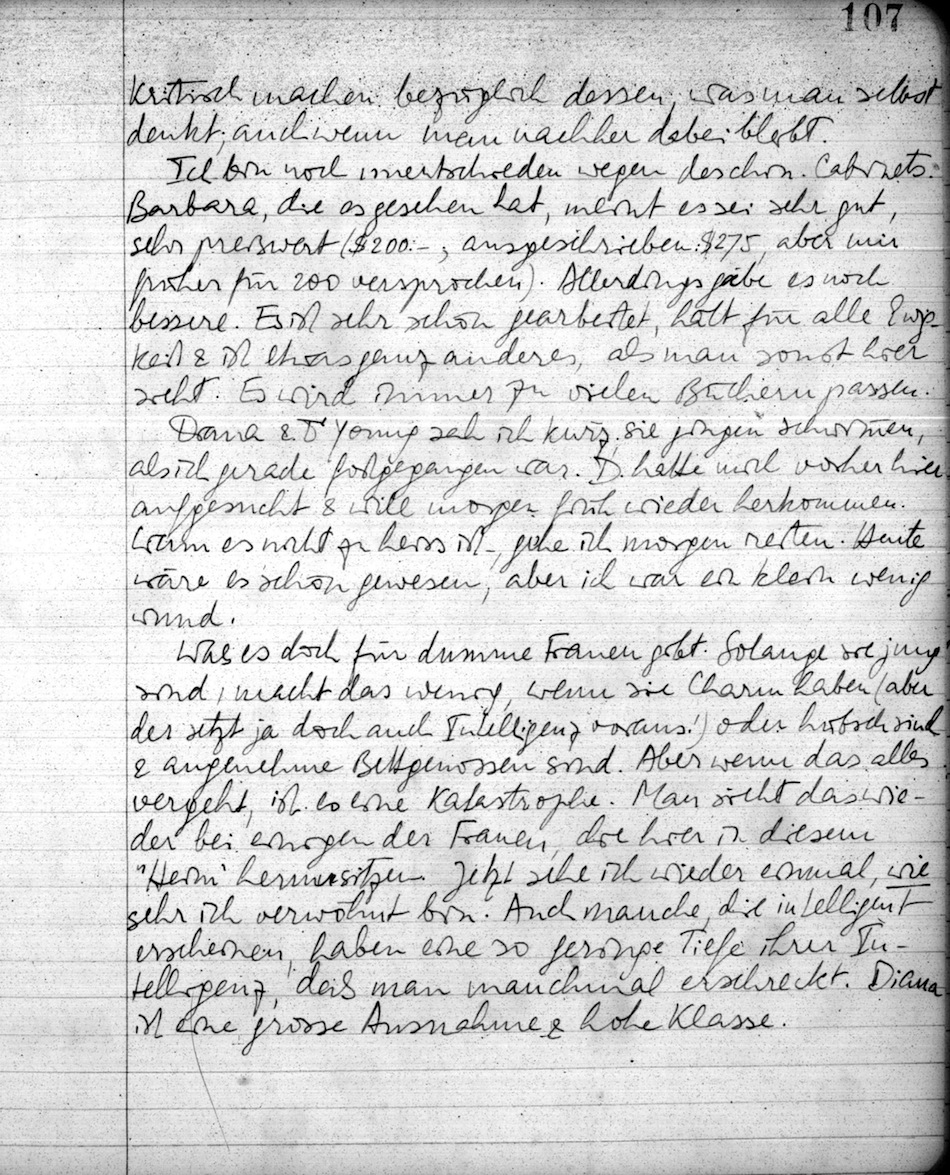 107
kritisch machen bezüglich dessen, was man selbst
denkt, auch wenn man nachher dabei bleibt.
Ich bin noch unentschieden wegen des chin. Cabinets.
Barbara, die es gesehen hat, meint es sei sehr gut,
sehr preiswert ($200.-, ausgeschrieben: $275, aber mir
früher für 200 versprochen). Allerdings gäbe es noch
bessere. Es ist sehr schön gearbeitet, hält für alle Ewig-
keit & ist etwas ganz anderes, als man sonst hier
sieht. Es wird immer zu vielen Büchern passen.
Diana & Young sah ich kurz, sie gingen schwimmen,
als ich gerade fortgegangen war. D. hatte mich vorher hier
aufgesucht & will morgen früh wieder herkommen.
Wenn es nicht zu heiss ist, gehe ich morgen reiten. Heute
wäre es schön gewesen, aber ich war ein klein wenig
wund.
Was es doch für dumme Frauen gibt. Solange sie jung
sind, macht das wenig, wenn sie Charm haben (aber
der setzt ja doch auch Intelligenz voraus!) oder hübsch sind
& angenehme Bettgenossen sind. Aber wenn das alles
vergeht, ist es eine Katastrophe. Man sieht das wie-
der bei einigen der Frauen, die hier in diesem
"Heim" herumsitzen. Jetzt sehe ich wieder einmal, wie
sehr ich verwöhnt bin. Auch manche, die intelligent
erscheinen, haben eine so geringe Tiefe ihrer In-
telligenz, daß man manchmal erschreckt. Diana
ist eine grosse Ausnahme & hohe Klasse.